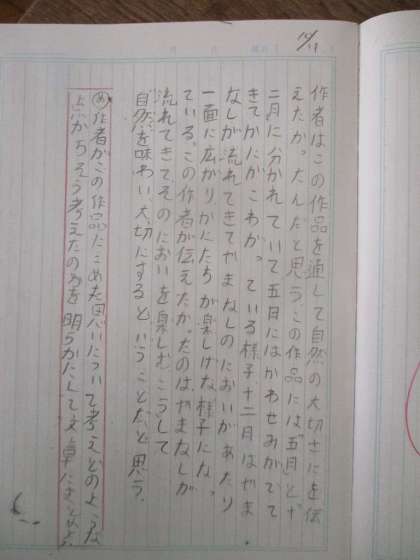 12/11
作者はこの作品を通して自然の大切さにを伝
えたかったんだと思う。この作品には「五月」と十
二月に分かれていて五月にはかわせみがでて
きてかにがこわがっている様子十二月はやま
なしが流れてきてやまなしのにおいがあたり
一面に広がりかにたちが楽しげな様子になっ
ている。この作者が伝えたかったのはやまなしが
流れてきて、そのにおいを楽しむこうして
自然を味わい、大切にするということだと思う。
め 作者がこの作品にこめた思いについて考えどのような
点からそう考えたのかを明らかにして文章にまとめよう